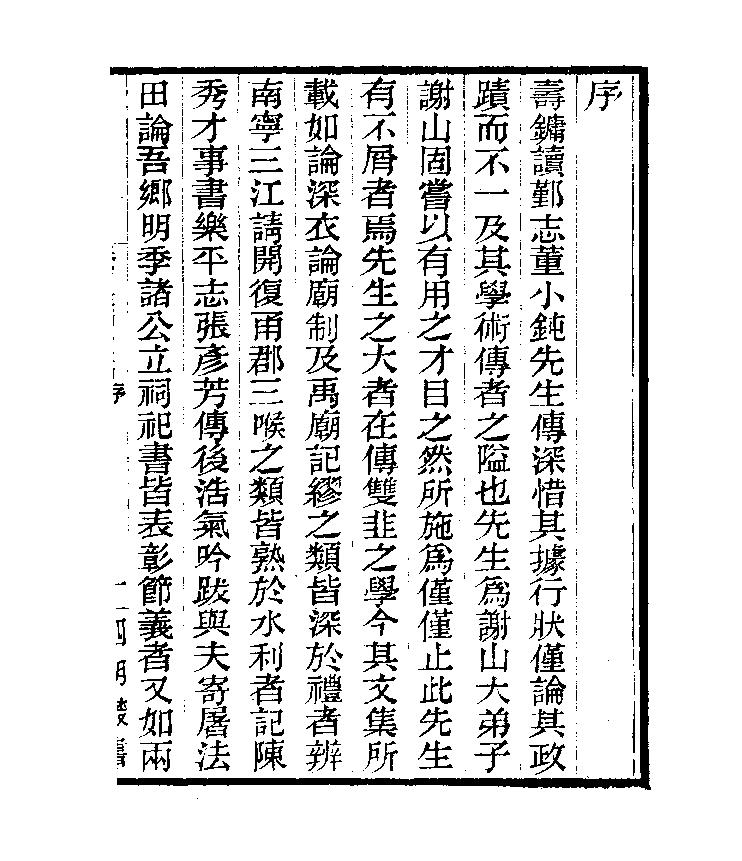 序
壽鏞讀鄞志董小鈍先生傳深惜其據行狀僅論其政
蹟而不一及其學術傳者之隘也先生爲謝山大弟子
謝山固嘗以有用之才目之然所施爲僅僅止此先生
有不屑者焉先生之大者在傳雙韭之學今其文集所
載如論深衣論廟制及禹廟記繆之類皆深於禮者辨
南寧三江請開復甬郡三喉之類皆熟於水利者記陳
秀才事書樂平志張彥芳傳後浩氣吟跋與夫寄屠法
田論吾鄉明季諸公立祠祀書皆表彰節義者又如兩
序 一 四明叢書